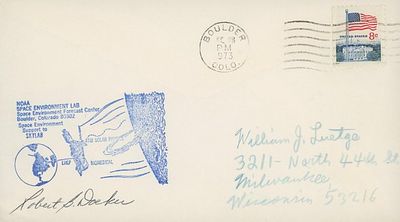 BOULDER
PM
1973
COLO.
UNITED STATES 8c
NOAA
SPACE ENVIRONMENT LAB
Space Environment Forecast Center
Boulder, Colorado 80302
Space Environment
Support to
SKYLAB
William J. Luetge
3211 - North 44th St
Milwaukee
Wisconsin 53216
Robert S. Docken